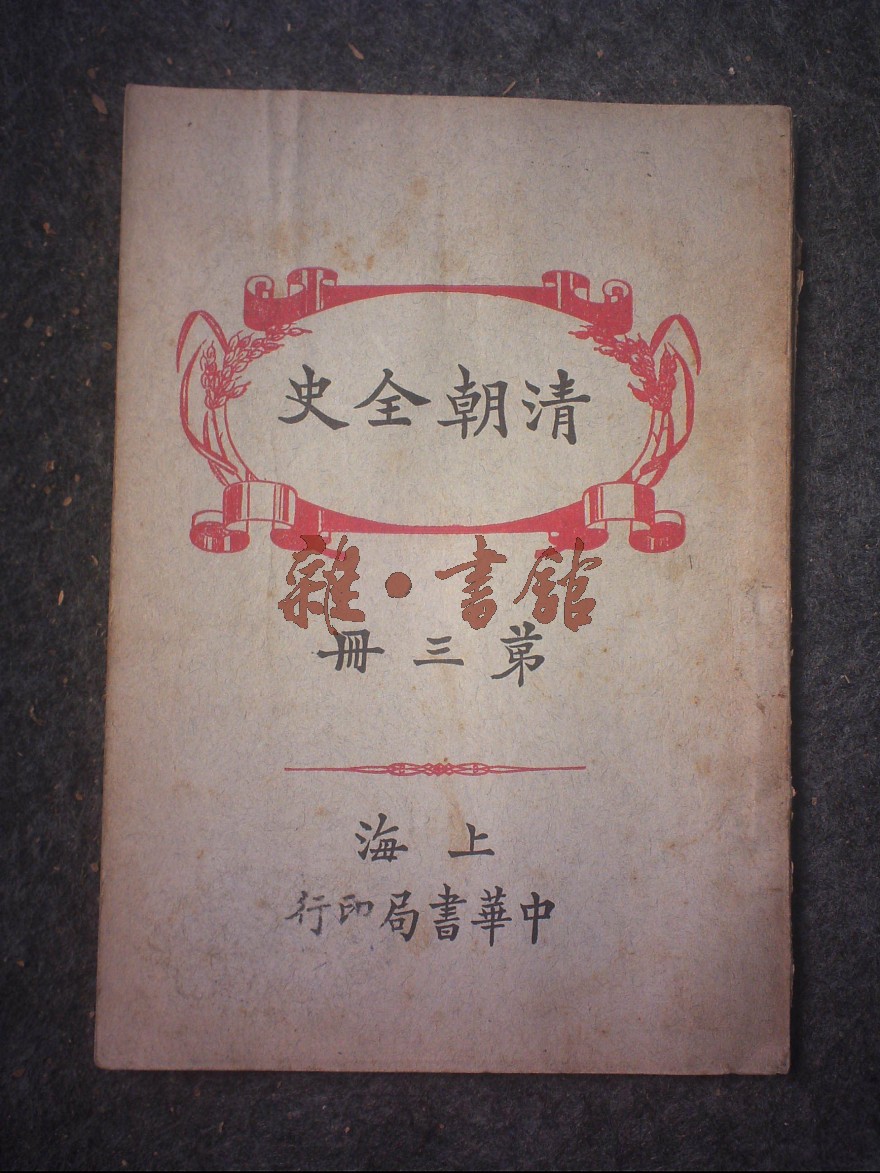 清朝全史
雜·書館
第三冊
上海
中華書局印行